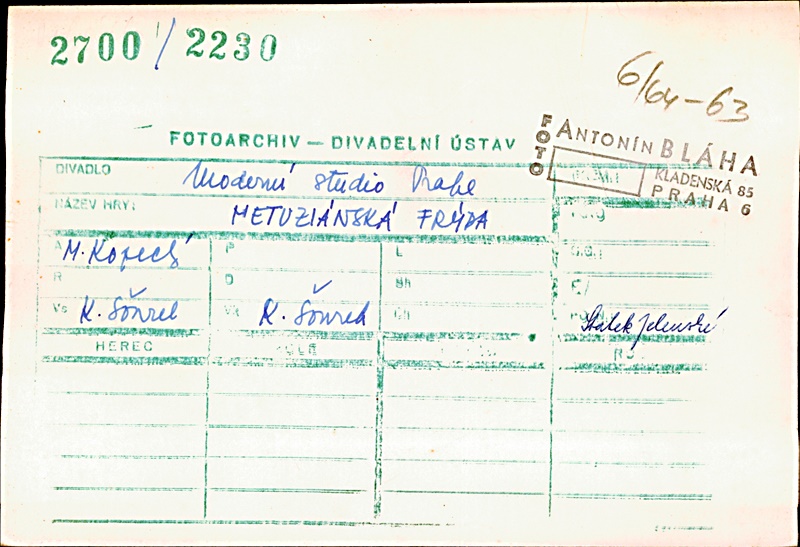 2700 / 2230
6/64-63
FOTOARCHIV — DIVADELNÍ ÚSTAV
FOTO ANTONÍN BLÁHA
KLADENSKÁ 85
PRAHA 6
DIVADLO Moderní studio Praha
NÁZEV HRY: METUZIÁNSKÁ FRÝDA
A M. Kopecký P L
R D Sh
Vs K. Šonrek Vk K. Šonrek Ch
HEREC